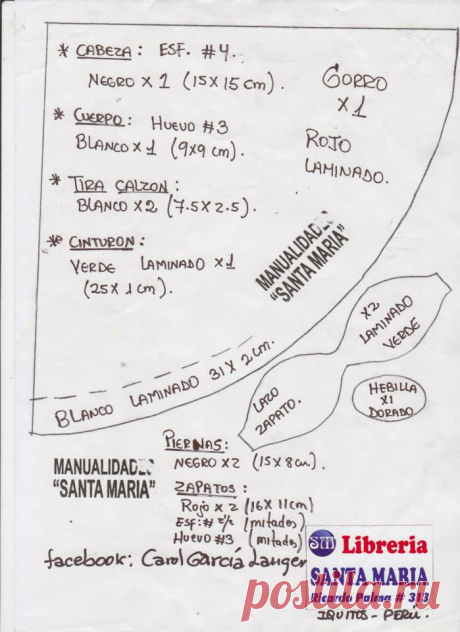 * CABEZA: ESF. #4.
NEGRO X 1 (15 X 15 cm).
GORRO
X1
ROJO
LAMINADO.
* CUERPO: HUEVO #3
BLANCO X 1 (9X9 cm).
* TIRA CALZON:
BLANCO X2 (7.5 X 2.5).
* CINTURON:
VERDE LAMINADO X1
(25 X 1 cm).
MANUALIDADES
"SANTA MARIA"
X2
LAMINADO
VERDE
LAZO
ZAPATO.
HEBILLA
X1
DORADO
BLANCO LAMINADO 31 X 2 cm.
PIERNAS:
NEGRO X2 (15 X 8 cm).
MANUALIDADES
"SANTA MARIA"
ZAPATOS:
ROJO X 2 (16 X 11 cm)
ESF: # 2/2 (mitades)
HUEVO #3 (mitades)
facebook: Carol García Langer
SM Libreria
SANTA MARIA
Ricardo Palma # 313
IQUITOS - PERÚ.
postila.ru